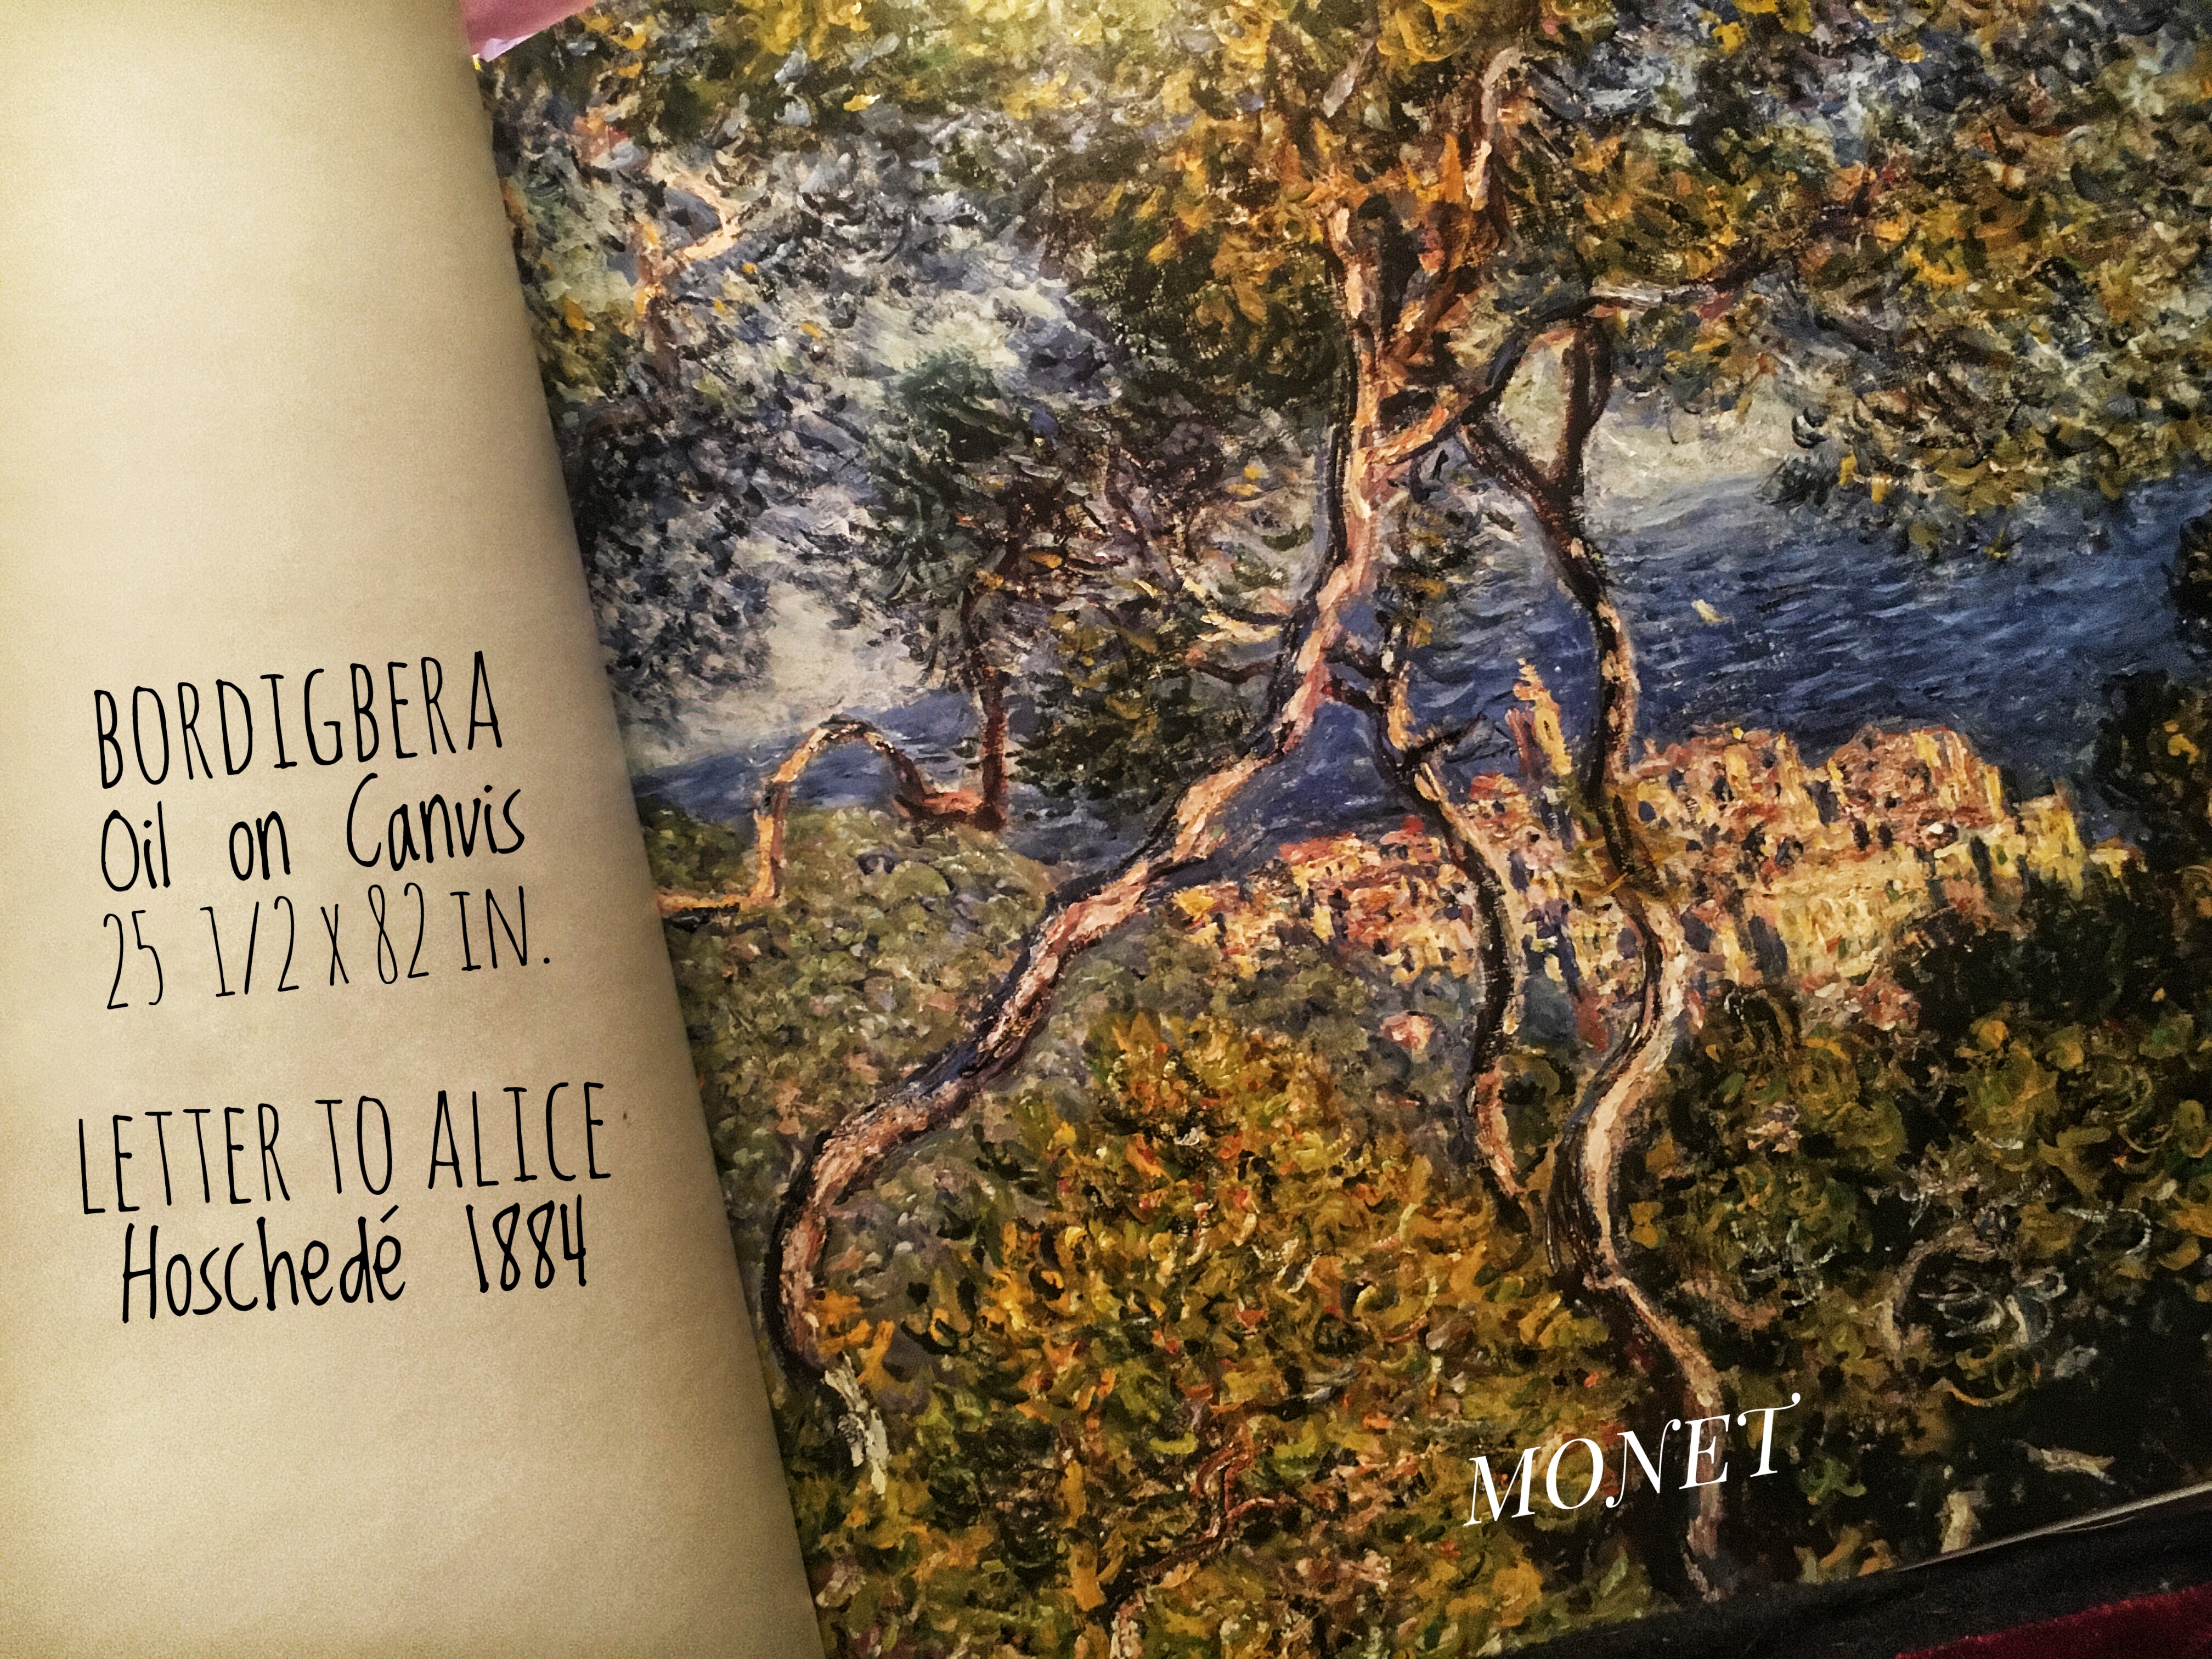 BORDIGBERA
Oil on Canvis
25 1/2 X 82 IN.
LETTER TO ALICE
Hoschedé 1884
MONET